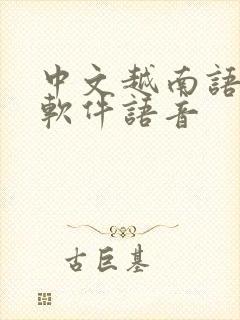 中文越南語
軟件語音
古巨基